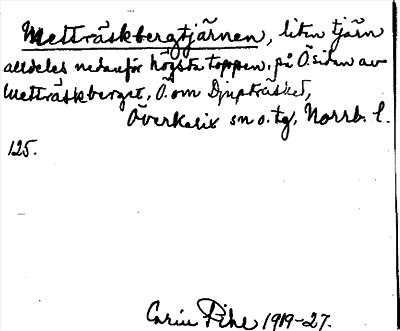 Metträskbergtjärnen, liten tjärn
alldeles nedanför högsta toppen, på Ö. sidan av
Metträskberget, Ö. om Djupträsket,
Överkalix sn o. tg, Norrb. l.
125.
Carin Pihl 1919-27.